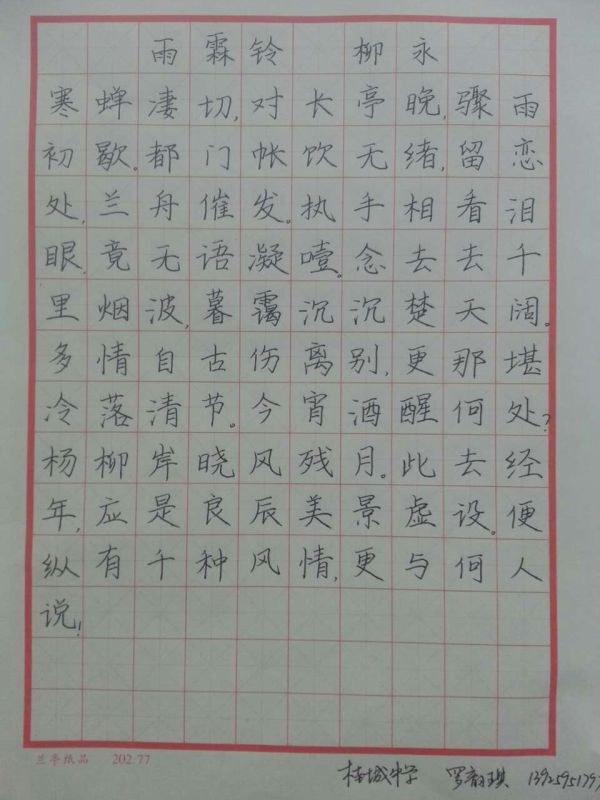 雨霖铃 柳永
寒蝉凄切,对长亭晚,骤雨
初歇。都门帐饮无绪,留恋
处,兰舟催发。执手相看泪
眼,竟无语凝噎。念去去千
里烟波,暮霭沉沉楚天阔。
多情自古伤离别,更那堪
冷落清节。今宵酒醒何处?
杨柳岸晓风残月。此去经
年,应是良辰美景虚设。便
纵有千种风情,更与何人
说!
兰亭纸品 202.77
桂城中学 罗韵琪